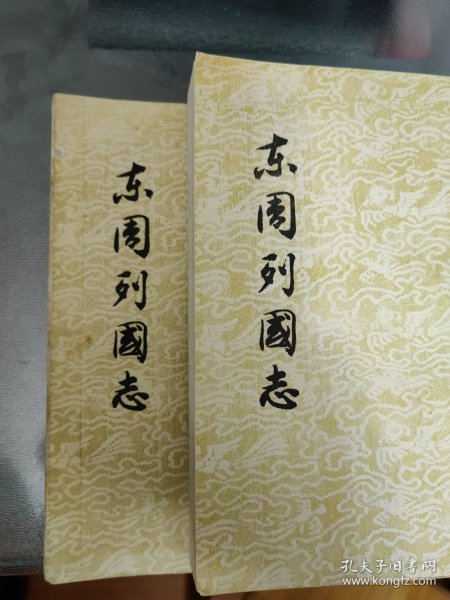 东周列國志
东周列國志
孔夫子旧书网
www.kongfz.com